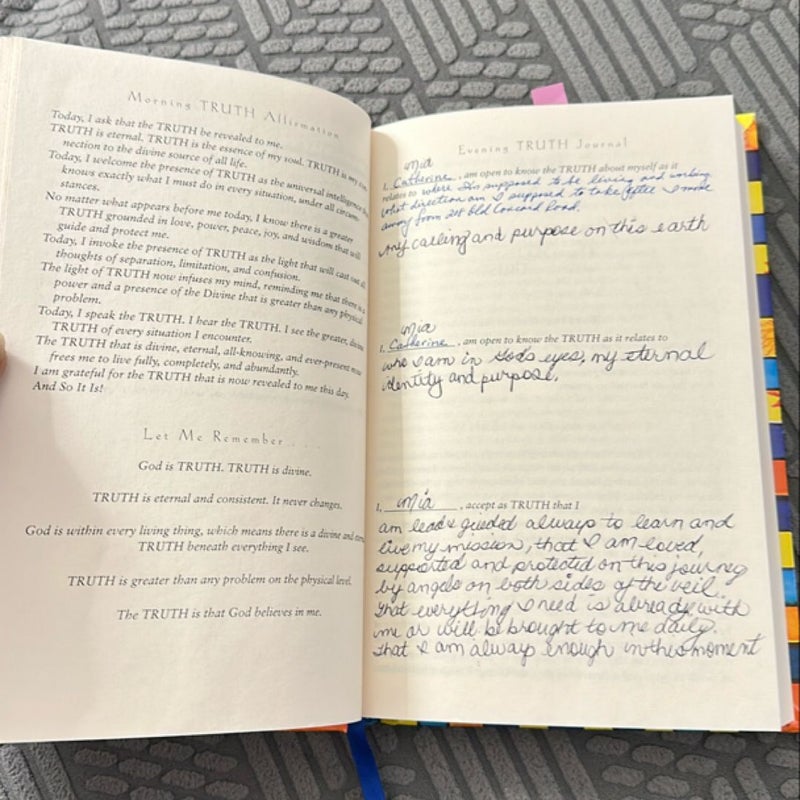 Morning TRUTH Affirmation
Today, I ask that the TRUTH be revealed to me.
TRUTH is eternal. TRUTH is the essence of my soul. TRUTH is my
nection to the divine source of all life.
Today, I welcome the presence of TRUTH as the universal intelligence
knows exactly what I must do in every situation, under all circum-
stances.
No matter what appears before me today, I know there is a greater
TRUTH grounded in love, power, peace, joy, and wisdom that will
guide and protect me.
Today, I invoke the presence of TRUTH as the light that will cast out all
thoughts of separation, limitation, and confusion.
The light of TRUTH now infuses my mind, reminding me that there is a
power and a presence of the Divine that is greater than any physical
problem.
Today, I speak the TRUTH. I hear the TRUTH. I see the greater, divine
TRUTH of every situation I encounter.
The TRUTH that is divine, eternal, all-knowing, and ever-present now
frees me to live fully, completely, and abundantly.
I am grateful for the TRUTH that is now revealed to me this day.
And So It Is!
Let Me Remember . . .
God is TRUTH. TRUTH is divine.
TRUTH is eternal and consistent. It never changes.
God is within every living thing, which means there is a divine and
TRUTH beneath everything I see.
TRUTH is greater than any problem on the physical level.
The TRUTH is that God believes in me.
Evening TRUTH Journal
Mia
I, Catherine, am open to know the TRUTH about myself as it
relates to where I'm supposed to be living and working
what direction am I supposed to take after I move
away from Old Concord Road.
My calling and purpose on this earth
Mia
I, Catherine, am open to know the TRUTH as it relates to
who I am in Gods eyes, my eternal
identity and purpose.
I, Mia, accept as TRUTH that I
am lead & guided always to learn and
live my mission, that I am loved,
supported and protected on this journey
by angels on both sides of the veil.
That everything I need is already with
me or will be brought to me daily.
That I am always enough in this moment